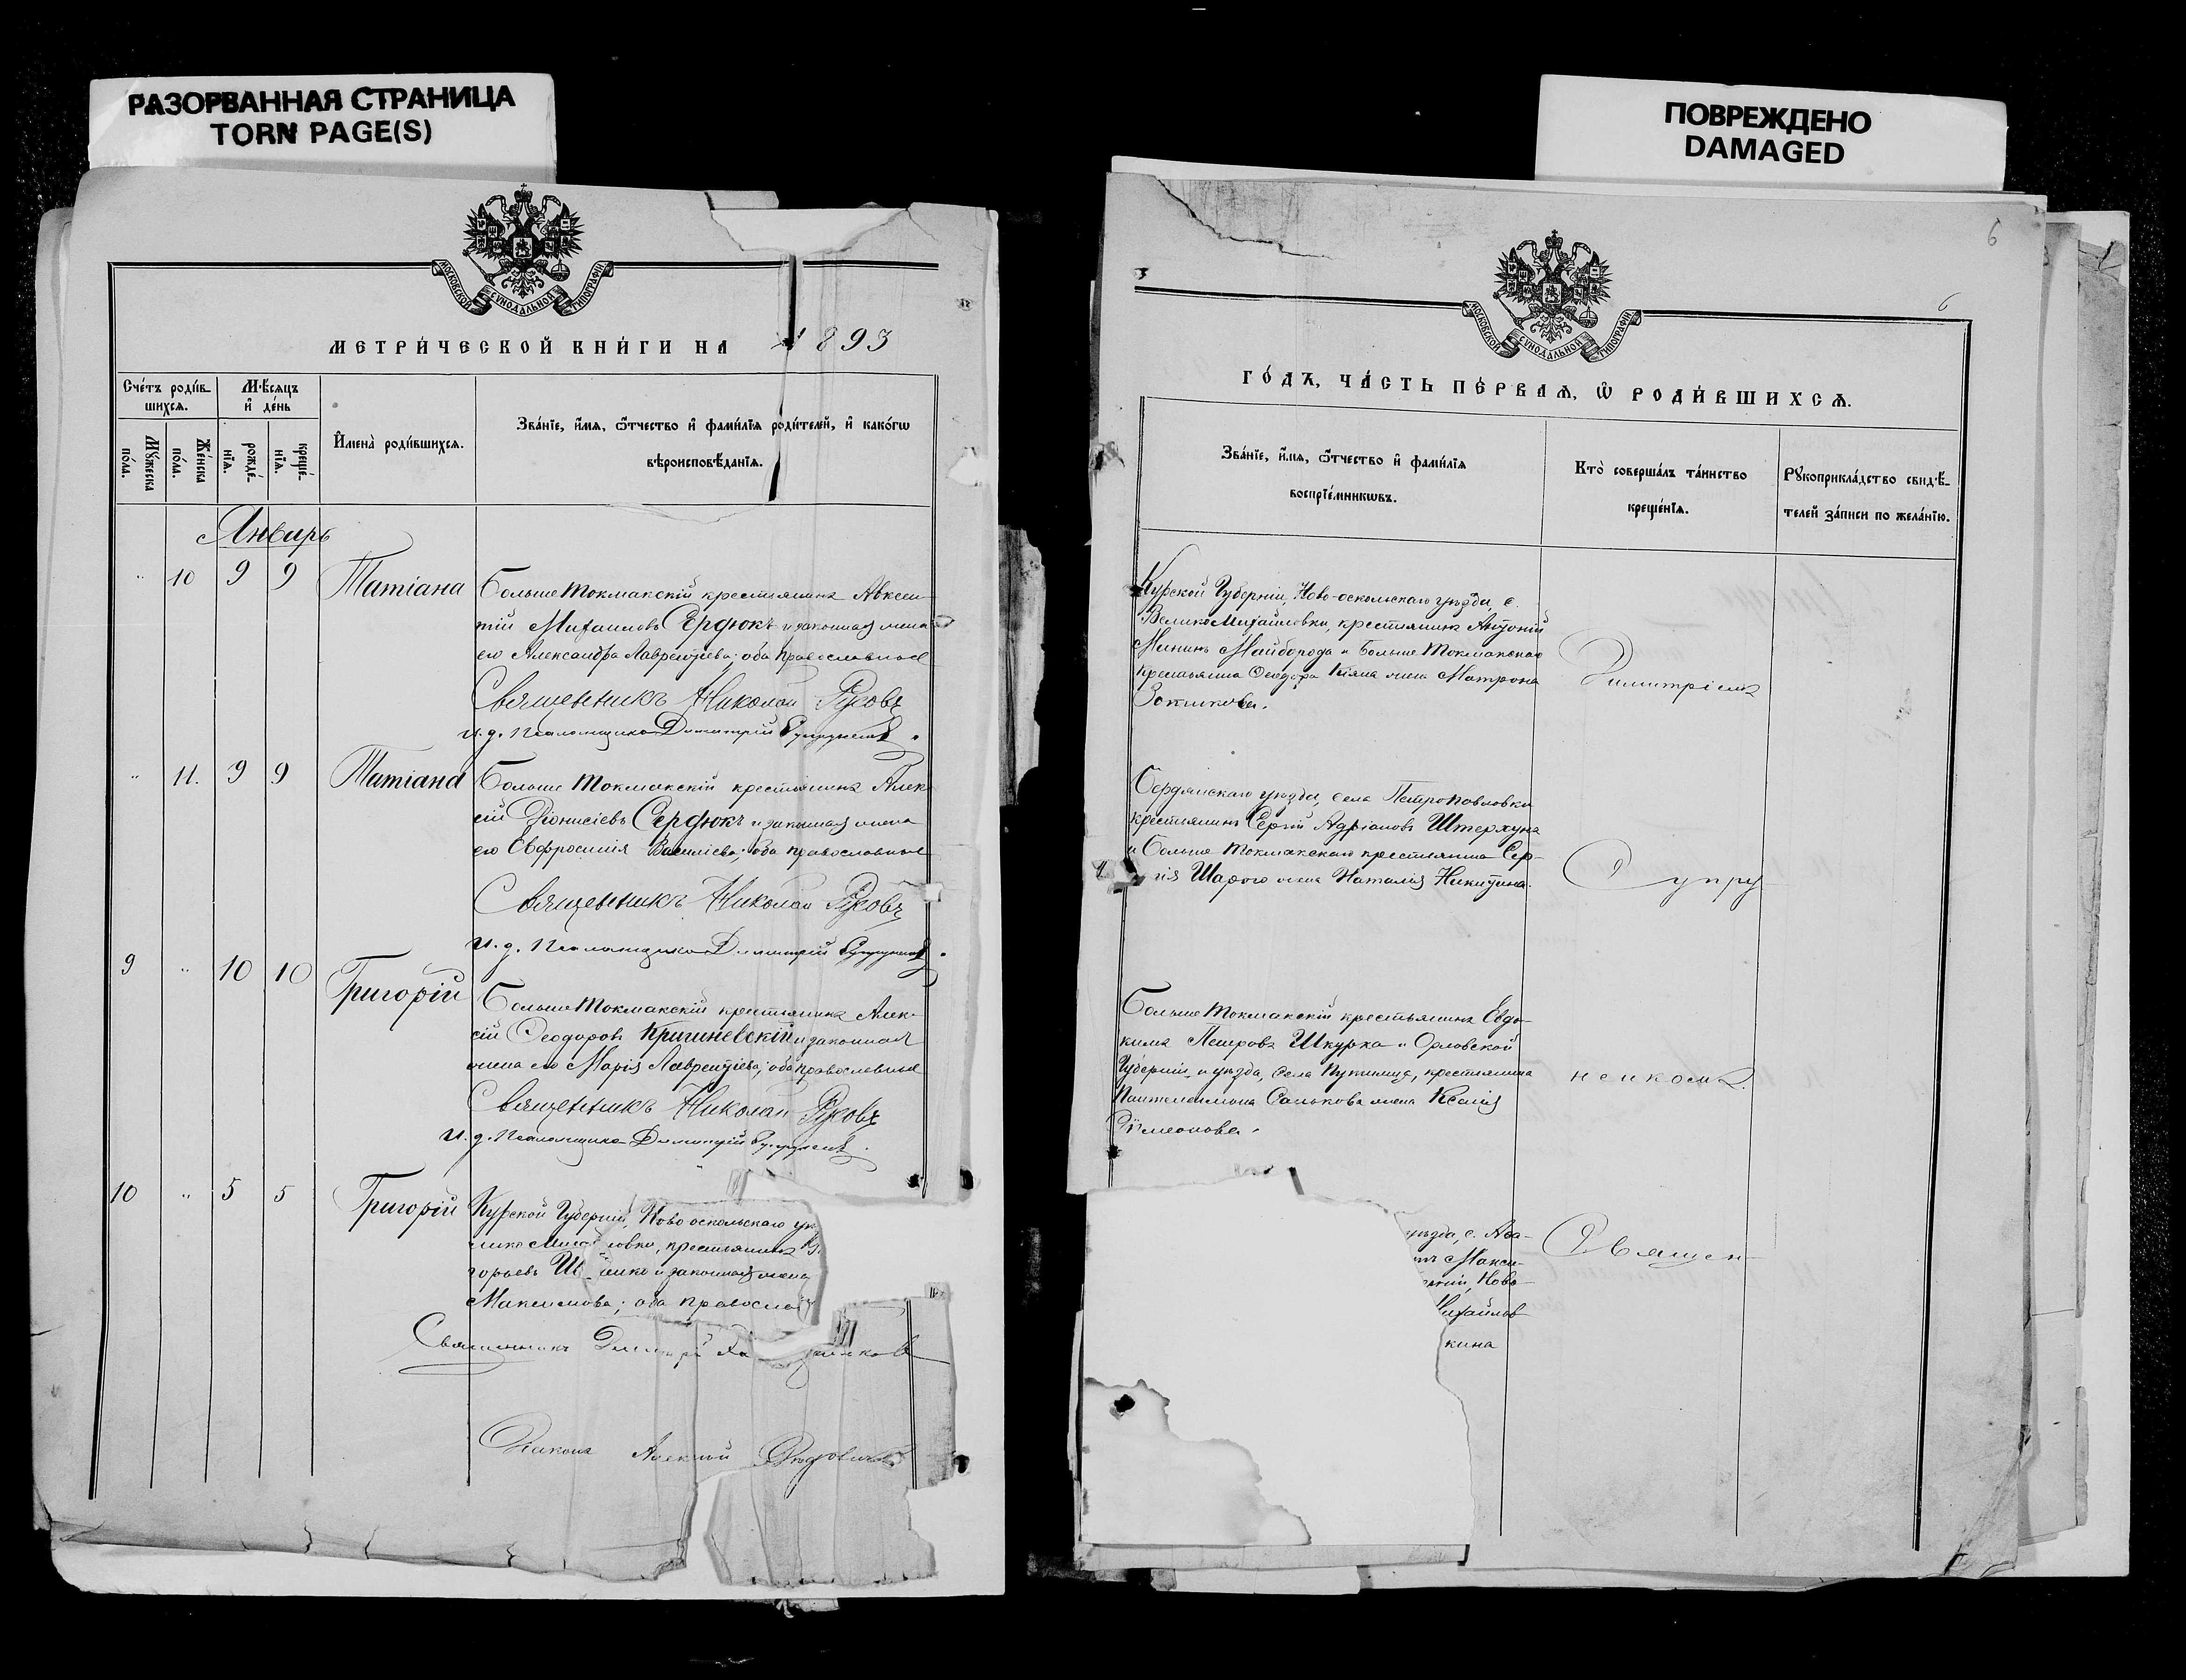 РАЗОРВАННАЯ СТРАНИЦА
TORN PAGE(S)
МОСКОВСКОЙ СУНОДАЛЬНОЙ ТИПОГРАФІИ
МЕТРИ́ЧЕСКОЙ КНИ́ГИ НА 1893
Сче́тъ роди́в-
шихсѧ.
Мѣ́сѧцъ
и҆ де́нь
И҆мена̀ роди́вшихсѧ.
Зва́нїе, и҆́мѧ, ѻ҆́тчество и҆ фами́лїѧ роди́телей, и҆ како́гѡ
вѣроисповѣ́данїѧ.
Мꙋ́жеска
по́ла.
Же́нска
по́ла.
рожде́-
нїѧ.
креще́-
нїѧ.
Январь
" 10 9 9 Татіана
Больше Токмакскій крестьянинъ Авксен-
тій Михаиловъ Сердюкъ и законная жена
его Александра Лаврентіева; оба православные
Священникъ Николай Русовъ
и. д. Псаломщика Димитрій
" 11. 9 9 Татіана
Больше Токмакскій крестьянинъ Алек-
сій Діонисіевъ Сердюкъ и законная жена
его Евфросинія Василіева; оба православные
Священникъ Николай Русовъ
и. д. Псаломщика Димитрій
9 " 10 10 Григорій
Больше Токмакскій крестьянинъ Алек-
сій Ѳеодоровъ Кришневскій и законная
жена его Марія Лаврентіева; оба православные
Священникъ Николай Русовъ
и. д. Псаломщика Димитрій
10 " 5 5 Григорій
Курской Губерніи, Ново оскольскаго уѣ
крестьянинъ
горьевъ и законная жена
Максимова; оба правосла
Священникъ
Дьяконъ Алексій
ПОВРЕЖДЕНО
DAMAGED
6
6
МОСКОВСКОЙ СУНОДАЛЬНОЙ ТИПОГРАФІИ
ГО́ДЪ, ЧА́СТЬ ПЕ́РВАѦ, Ѡ҆ РОДИ́ВШИХСѦ.
Зва́нїе, и҆́мѧ, ѻ҆́тчество и҆ фами́лїѧ
воспрїе́мникѡвъ.
Кто̀ соверша́лъ та́инство
креще́нїѧ.
Рꙋкоприкла́дство свидѣ́-
телей за́писи по жела́нїю.
Курской Губерніи, Ново-оскольскаго уѣзда, с.
Велико Михайловки, крестьянинъ Антоній
Мининъ Майборода и Больше Токмакскаго
крестьянина Ѳеодора Кіяна жена Матрона
Димитріемъ
Бердянскаго уѣзда, села Петропавловки
крестьянинъ Сергій Адріановъ Штерхунъ
и Больше Токмакскаго крестьянина Сер-
гія Шарого жена Наталія Никитина.
Супру
Больше Токмакскій крестьянинъ Евдо-
кимъ Петровъ Шкурка и Орловской
Губерніи и уѣзда, села крестьянина
Пантелеимона Салькова жена Ксенія
Симеонова.
ненкомъ.
уѣзда, с.
Макси-
Ново-
Михайлов
кина
Священ-